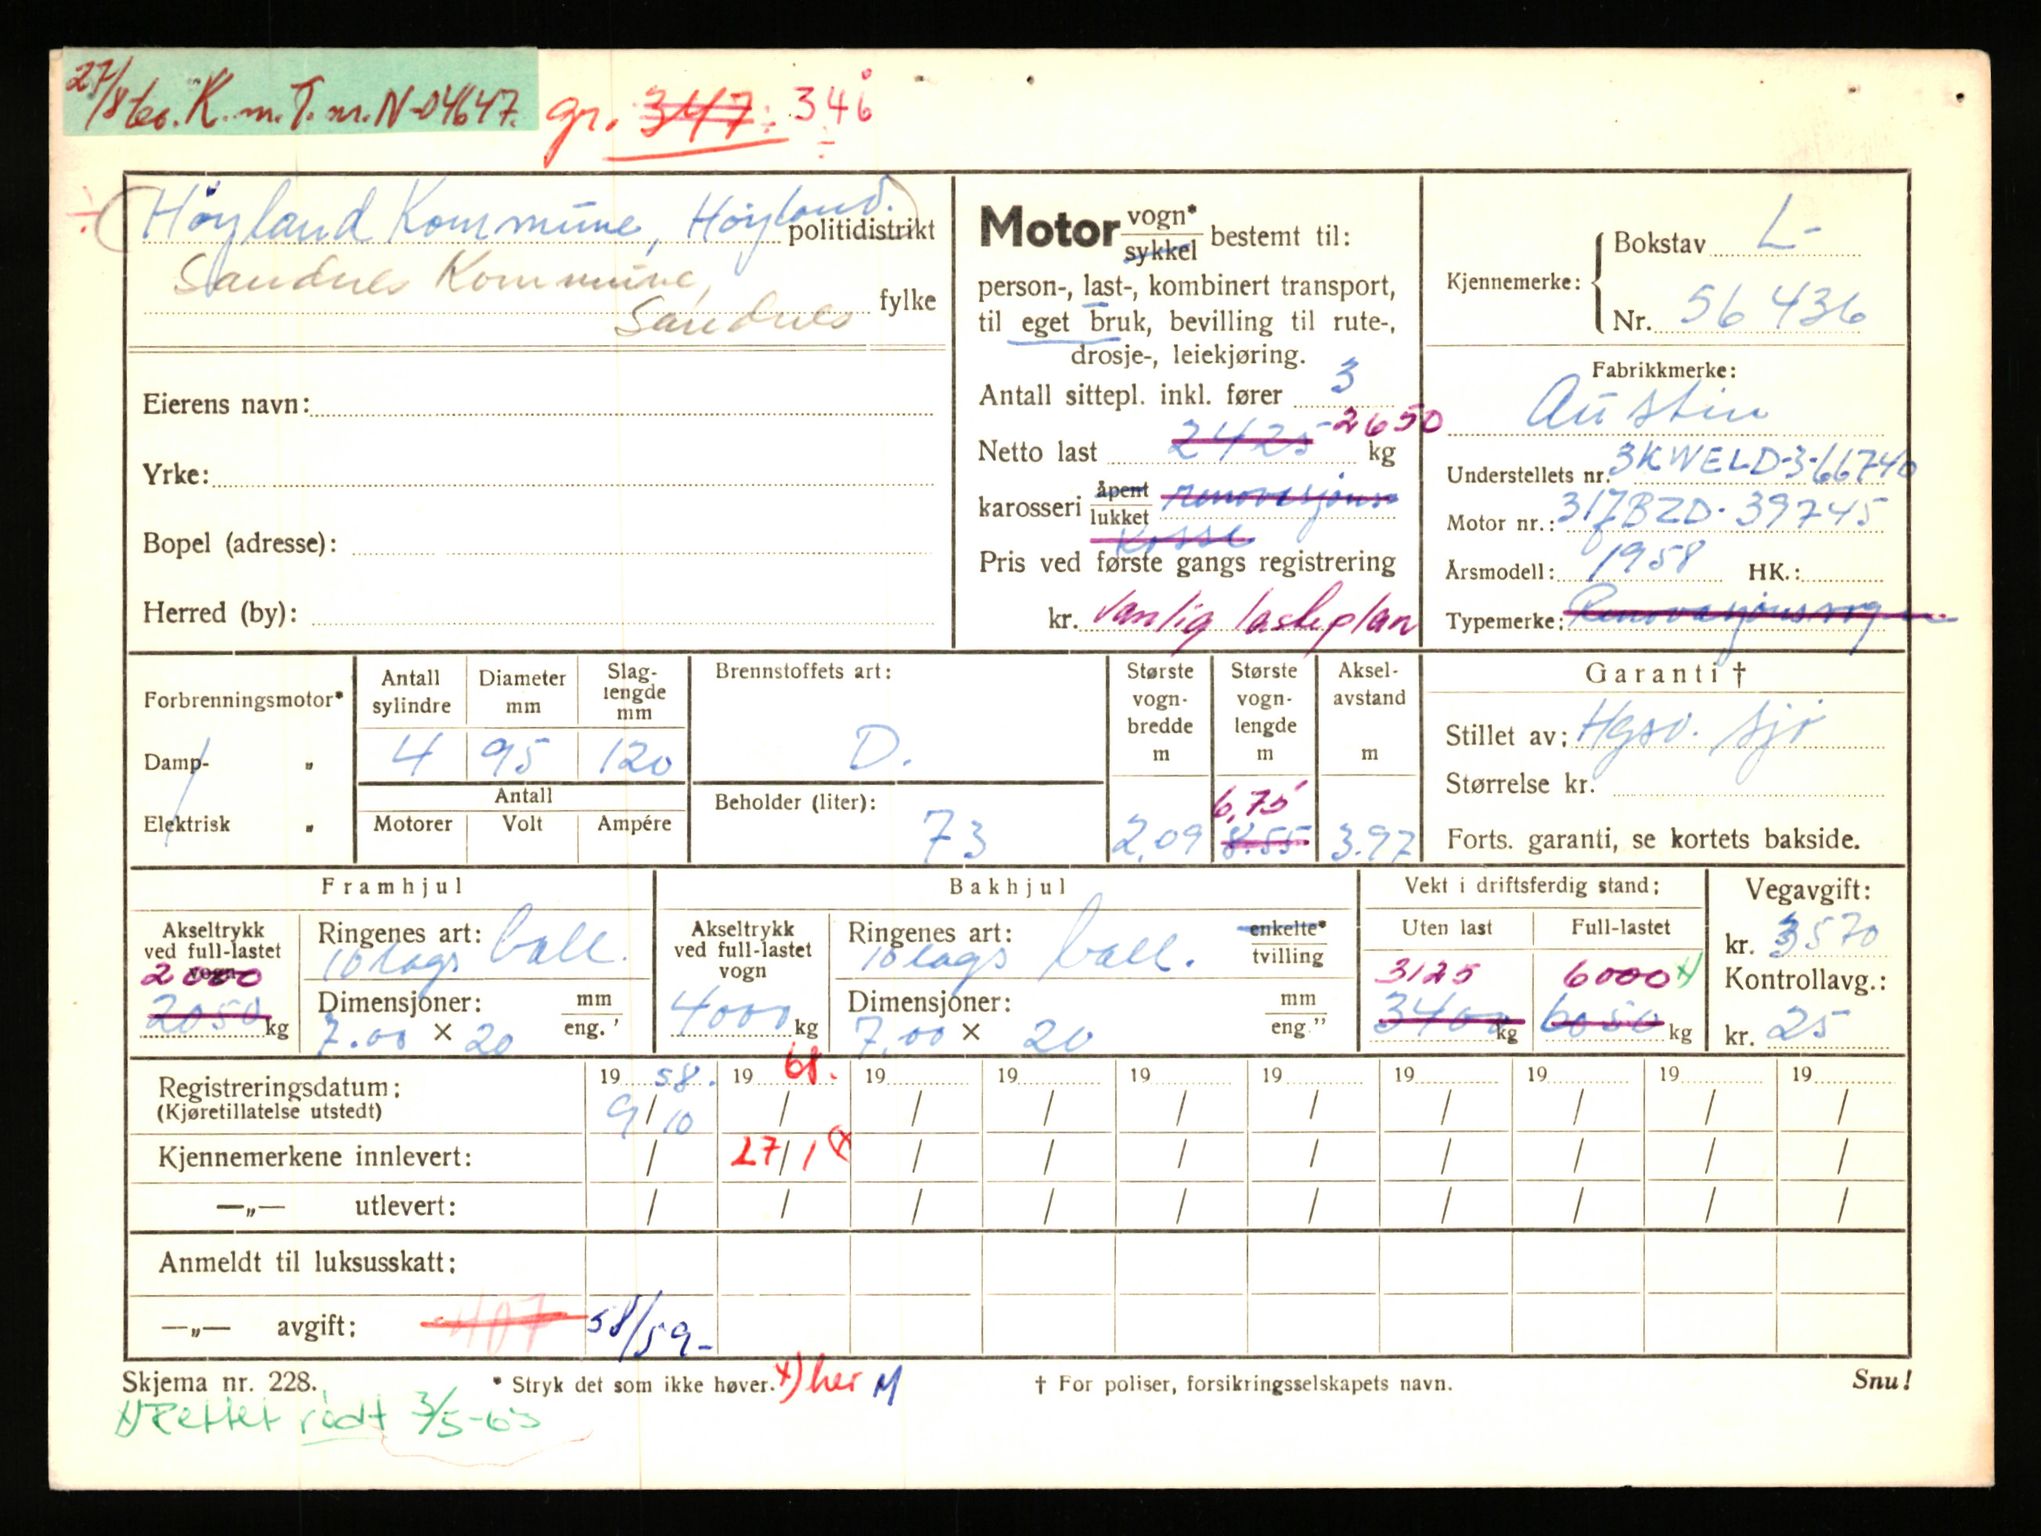 27/8 K. m. T. nr. N-04647. gr. 347 346
Høyland Kommune, Høyland. politidistrikt
Sandnes Kommune,
Sandnes fylke
Eierens navn:
Yrke:
Bopel (adresse):
Herred (by):
Motor vogn* sykkel bestemt til:
person-, last-, kombinert transport,
til eget bruk, bevilling til rute-,
drosje-, leiekjøring.
Antall sittepl. inkl. fører 3
Netto last 2425 2650 kg
karosseri åpent lukket renovasjons
kasse
Pris ved første gangs registrering
kr. vanlig lasteplan
Kjennemerke: Bokstav L-
Nr. 56436
Fabrikkmerke:
Austin
Understellets nr. 3KWELD-3-66740
Motor nr.: 317BZD-39745
Årsmodell: 1958 HK.:
Typemerke: Renovasjonsvogn
Forbrenningsmotor*
Damp- „
Elektrisk „
Antall sylindre Diameter mm Slag-lengde mm
4 95 120
Antall
Motorer Volt Ampére
Brennstoffets art:
D.
Beholder (liter):
73
Største vogn-bredde m
2,09
Største vogn-lengde m
6,75
8.55
Aksel-avstand m
3.97
Garanti †
Stillet av: Hgsv. Sjø
Størrelse kr.
Forts. garanti, se kortets bakside.
Framhjul
Akseltrykk ved full-lastet vogn
2000
2050 kg
Ringenes art: ball.
10 lags
Dimensjoner: mm eng. '
7.00 × 20
Bakhjul
Akseltrykk ved full-lastet vogn
4000 kg
Ringenes art: ball. enkelte* tvilling
10 lags
Dimensjoner: mm eng. "
7.00 × 20
Vekt i driftsferdig stand:
Uten last Full-lastet
3125 6000 x)
3400 kg 6050 kg
Vegavgift:
kr. 3570
Kontrollavg.:
kr. 25
Registreringsdatum: 19 58. 19 68. 19 19 19 19 19 19 19 19
(Kjøretillatelse utstedt) 9/10 / / / / / / / / /
Kjennemerkene innlevert: / 27/1 x) / / / / / / / /
—„— utlevert: / / / / / / / / / /
Anmeldt til luksusskatt:
—„— avgift: 407 58/59-
Skjema nr. 228. * Stryk det som ikke høver. x) her M † For poliser, forsikringsselskapets navn. Snu!
x) Rettet rødt 3/5-63